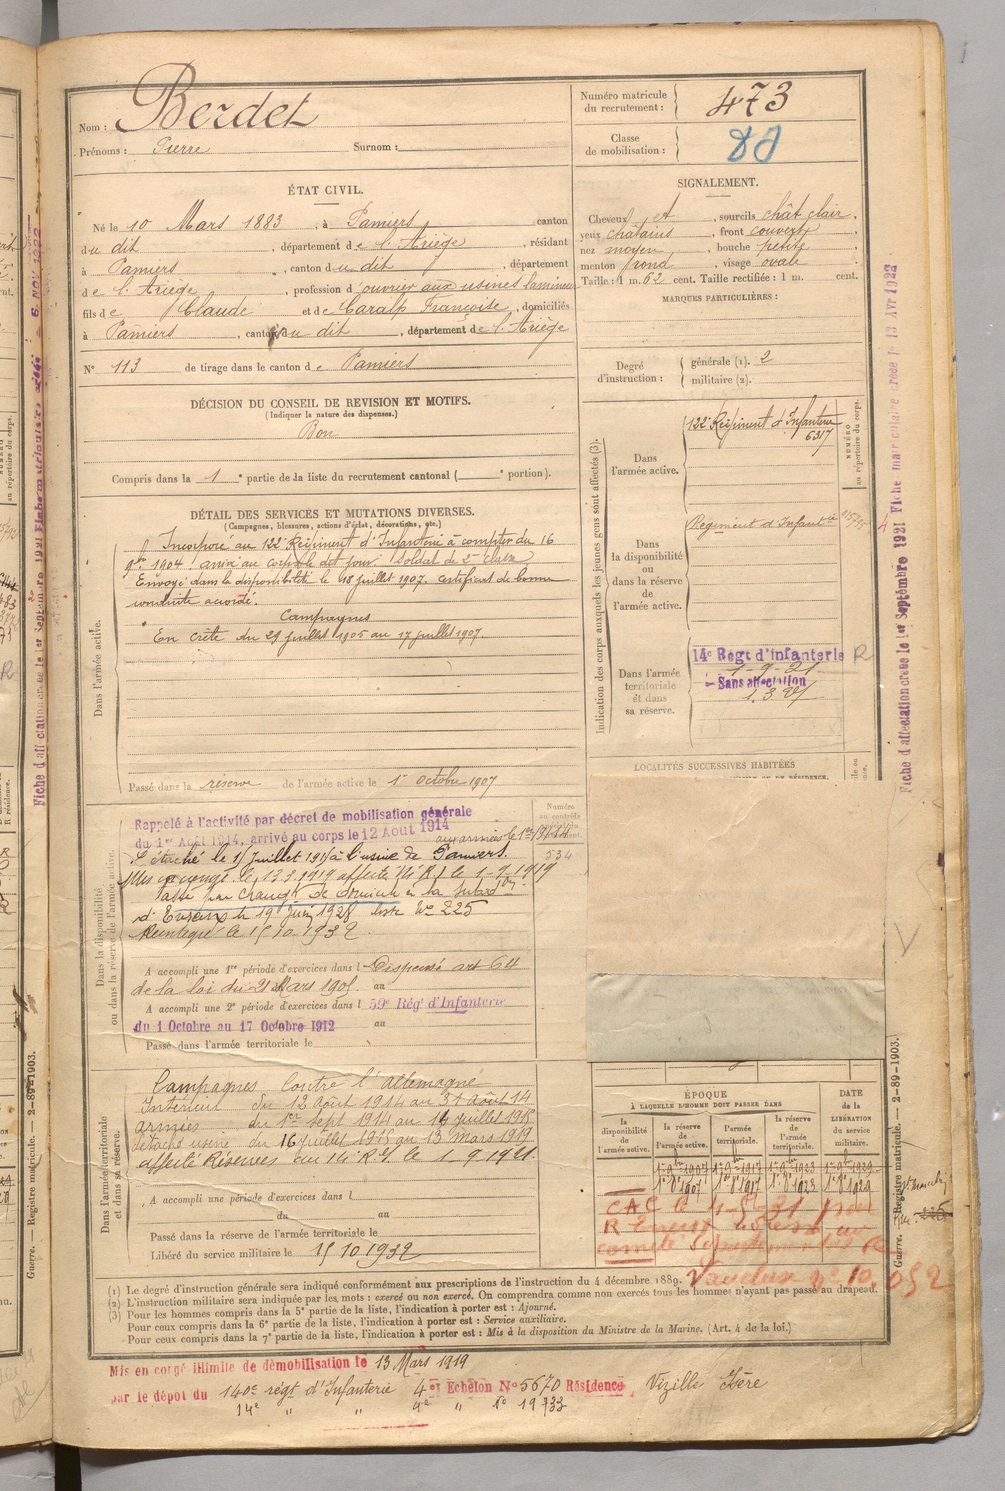 Nom : Berdet
Prénoms : Pierre Surnom :
Numéro matricule du recrutement : 473
Classe de mobilisation :
ÉTAT CIVIL.
Né le 10 Mars 1883, à Pamiers canton
du dit, département de l'Ariège, résidant
à Pamiers, canton du dit, département
de l'Ariège, profession d'ouvrier aux usines lamineur
fils de Claude et de Caralp Françoise, domiciliés
à Pamiers, canton du dit, département de l'Ariège
N° 113 de tirage dans le canton de Pamiers
SIGNALEMENT.
Cheveux et, sourcils chât clair,
yeux châtains, front couvert
nez moyen, bouche petite
menton rond, visage ovale
Taille : 1 m. 62 cent. Taille rectifiée : 1 m. cent.
MARQUES PARTICULIÈRES :
Degré d'instruction : générale (1). 2
militaire (2).
DÉCISION DU CONSEIL DE REVISION ET MOTIFS.
(Indiquer la nature des dispenses.)
Bon
Compris dans la 1e partie de la liste du recrutement cantonal ( e portion).
DÉTAIL DES SERVICES ET MUTATIONS DIVERSES.
(Campagnes, blessures, actions d'éclat, décorations, etc.)
Dans l'armée active.
Incorporé au 122e Régiment d'Infanterie à compter du 16
9bre 1904 arrivé au corps le dit jour. Soldat de 2e classe
Envoyé dans la disponibilité le 18 juillet 1907. Certificat de bonne
conduite accordé.
Campagnes
En Crète du 29 juillet 1905 au 17 juillet 1907.
Passé dans la réserve de l'armée active le 1er octobre 1907
Indication des corps auxquels les jeunes gens sont affectés (3).
NUMÉRO au répertoire du corps.
Dans l'armée active.
122e Régiment d'Infanterie
6317
Dans la disponibilité ou dans la réserve de l'armée active.
Régiment d'Infanterie
Dans l'armée territoriale et dans sa réserve.
14e Régt d'Infanterie R
1-9-21
Sans affectation
LOCALITÉS SUCCESSIVES HABITÉES
Dans la disponibilité ou dans la réserve de l'armée active.
Rappelé à l'activité par décret de mobilisation générale
du 1er Août 1914, arrivé au corps le 12 Août 1914
aux armées le 1er
534
Détaché le 15 juillet 1915 à l'usine de Pamiers.
Mis en congé le 13.3.1919 affecté 14e R.I. le 1-9-1919
Passé par changt de domicile à la Subdon
d' le 19 Juin 1928 liste No 225
Réintégré le 15.10.1932
A accompli une 1re période d'exercices dans l Dispensé art 64
de la loi du 21 Mars 1905 au
A accompli une 2e période d'exercices dans l 59e Rég' d'Infanterie
du 1 Octobre au 17 Octobre 1912 au
Passé dans l'armée territoriale le
Dans l'armée territoriale et dans sa réserve.
Campagnes Contre l'Allemagne
Intérieur du 12 Août 1914 au 31 Août 14
armées du 1er sept 1914 au 14 juillet 1915
détaché usine du 16 juillet 1915 au 13 Mars 1919
affecté Réserves au 14e R.I. le 1-9 1921.
A accompli une période d'exercices dans l
du au
Passé dans la réserve de l'armée territoriale le
Libéré du service militaire le 15 10 1932
ÉPOQUE
À LAQUELLE L'HOMME DOIT PASSER DANS
la disponibilité de l'armée active.
la réserve de l'armée active.
l'armée territoriale.
la réserve de l'armée territoriale.
DATE de la LIBÉRATION du service militaire.
1er 9bre 1907 1er 9bre 1917 1er 9bre 1923 1er 9bre 1929
1er 8bre 1907 1er 8bre 1917 1er 8bre 1923 1er 8bre 1929
(1) Le degré d'instruction générale sera indiqué conformément aux prescriptions de l'instruction du 4 décembre 1889.
(2) L'instruction militaire sera indiquée par les mots : exercé ou non exercé. On comprendra comme non exercés tous les hommes n'ayant pas passé au drapeau.
(3) Pour les hommes compris dans la 5e partie de la liste, l'indication à porter est : Ajourné.
Pour ceux compris dans la 6e partie de la liste, l'indication à porter est : Service auxiliaire.
Pour ceux compris dans la 7e partie de la liste, l'indication à porter est : Mis à la disposition du Ministre de la Marine. (Art. 4 de la loi.)
Mis en congé illimité de démobilisation le 13 Mars 1919
par le dépôt du 140e régt d'Infanterie 4e Echelon N° 5670 Résidence Vizille Isère
14e " " 4e " No 19733
Fiche d'affectation créée le 1er Septembre 1921 Fiche matriculaire créée le 18 Avr 1922
Guerre. — Registre matricule. — 2-89-1903.